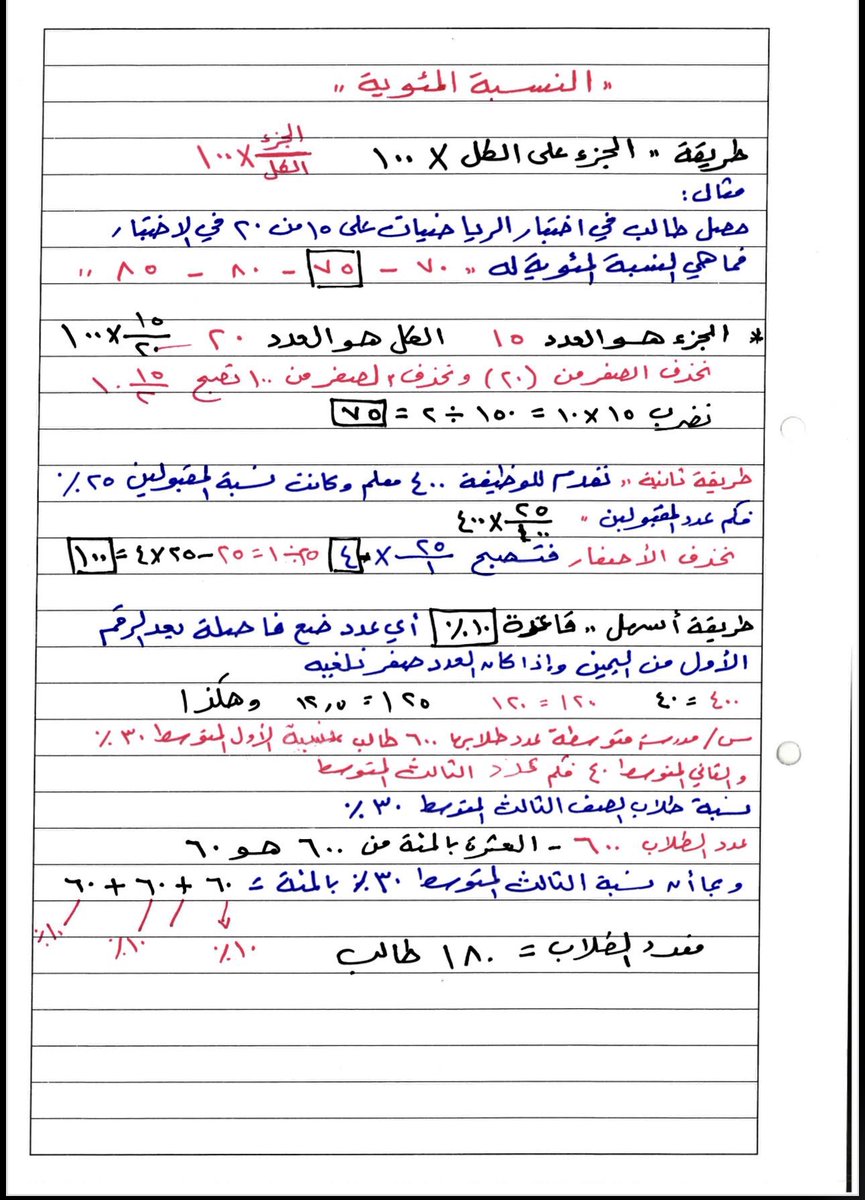 " النسبة المئوية "
طريقة " الجزء على الكل × ١٠٠ الجزء/الكل × ١٠٠
مثال :
حصل طالب في اختبار الرياضيات على ١٥ من ٢٠ في الاختبار
فما هي النسبة المئوية له " ٧٠ - ٧٥ - ٨٠ - ٨٥ "
* الجزء هو العدد ١٥ الكل هو العدد ٢٠ ١٥/٢٠ × ١٠٠
نحذف الصفر من (٢٠) ونحذف الصفر من ١٠٠ تصبح ١٥/٢ ١٠
نضرب ١٥ × ١٠ = ١٥٠ ÷ ٢ = ٧٥
طريقة ثانية " تقدم للوظيفة ٤٠٠ معلم وكانت نسبة المقبولين ٢٥٪
فكم عدد المقبولين " ٢٥/١٠٠ × ٤٠٠
نحذف الأصفار فتصبح ٢٥/١ × ٤ - ٢٥ ÷ ١ = ٢٥ - ٢٥ × ٤ = ١٠٠
طريقة أسهل " قاعدة ١٠٪ أي عدد ضع فاصلة بعد الرقم
الأول من اليمين وإذا كان العدد صفر نلغيه
٤٠٠ = ٤٠ ١٢٠ = ١٢٠ ١٢٥ = ١٢,٥ وهكذا
س/ مدرسة متوسطة عدد طلابها ٦٠٠ طالب نسبة الأول المتوسط ٣٠٪
والثاني المتوسط ٤٠ فكم عدد الثالث المتوسط
نسبة طلاب الصف الثالث المتوسط ٣٠٪
عدد الطلاب ٦٠٠ - العشرة بالمئة من ٦٠٠ هو ٦٠
وبما أن نسبة الثالث المتوسط ٣٠٪ بالمئة = ٦٠ + ٦٠ + ٦٠
١٠٪ ١٠٪ ١٠٪
فعدد الطلاب = ١٨٠ طالب